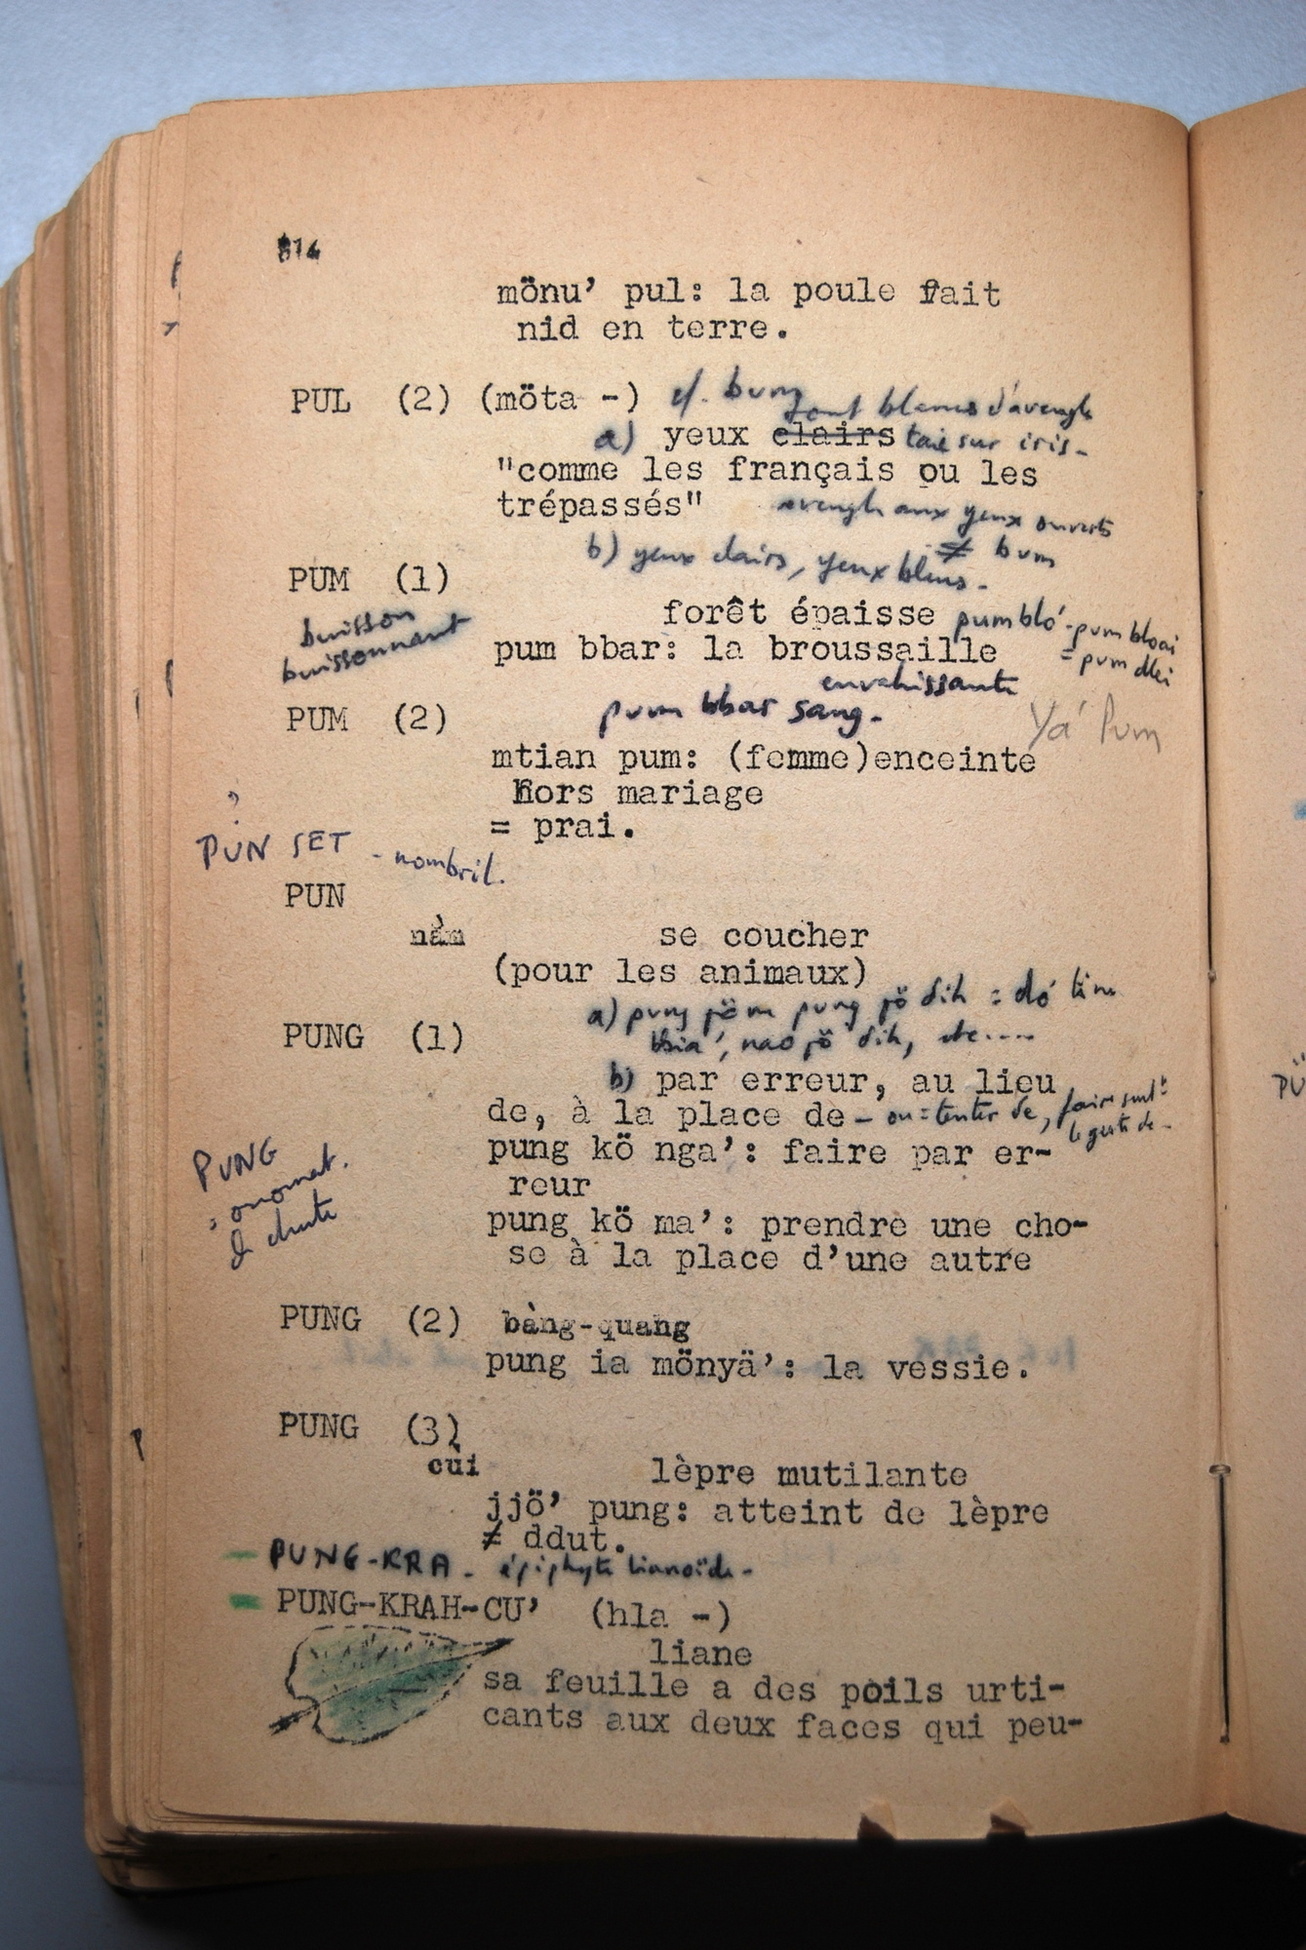 814
mönu’ pul: la poule fait
nid en terre.
PUL (2) (möta -) cf. bum
tout blancs d'aveugle
a) yeux clairs taie sur iris-
"comme les français ou les
trépassés" aveugle aux yeux ouverts
≠ bum
b) yeux clairs, yeux bleus-
PUM (1)
buisson
buissonnant
forêt épaisse pum bló-pum bloai
= pum dlei
pum bbar: la broussaille
envahissante
pum bbar sang-
PUM (2) Yá Pum
mtian pum: (femme)enceinte
hors mariage
= prai.
PUN SET - nombril.
PUN
nằm se coucher
(pour les animaux)
PUNG (1) a) pung jöm pung jö dih = dó
bbia', nao jö dih, etc....
b) par erreur, au lieu
de, à la place de - ou = tenter de, faire seul.t
le geste de-
pung kö nga’: faire par er-
reur
PUNG
= onomat.
de chute
pung kö ma’: prendre une cho-
se à la place d’une autre
PUNG (2) bàng-quang
pung ia mönyä’: la vessie.
PUNG (3)
cùi lèpre mutilante
jjö’ pung: atteint de lèpre
≠ ddut.
- PUNG-KRA - épiphyte lianoïde-
- PUNG-KRAH-CU’ (hla -)
liane
sa feuille a des poils urti-
cants aux deux faces qui peu-